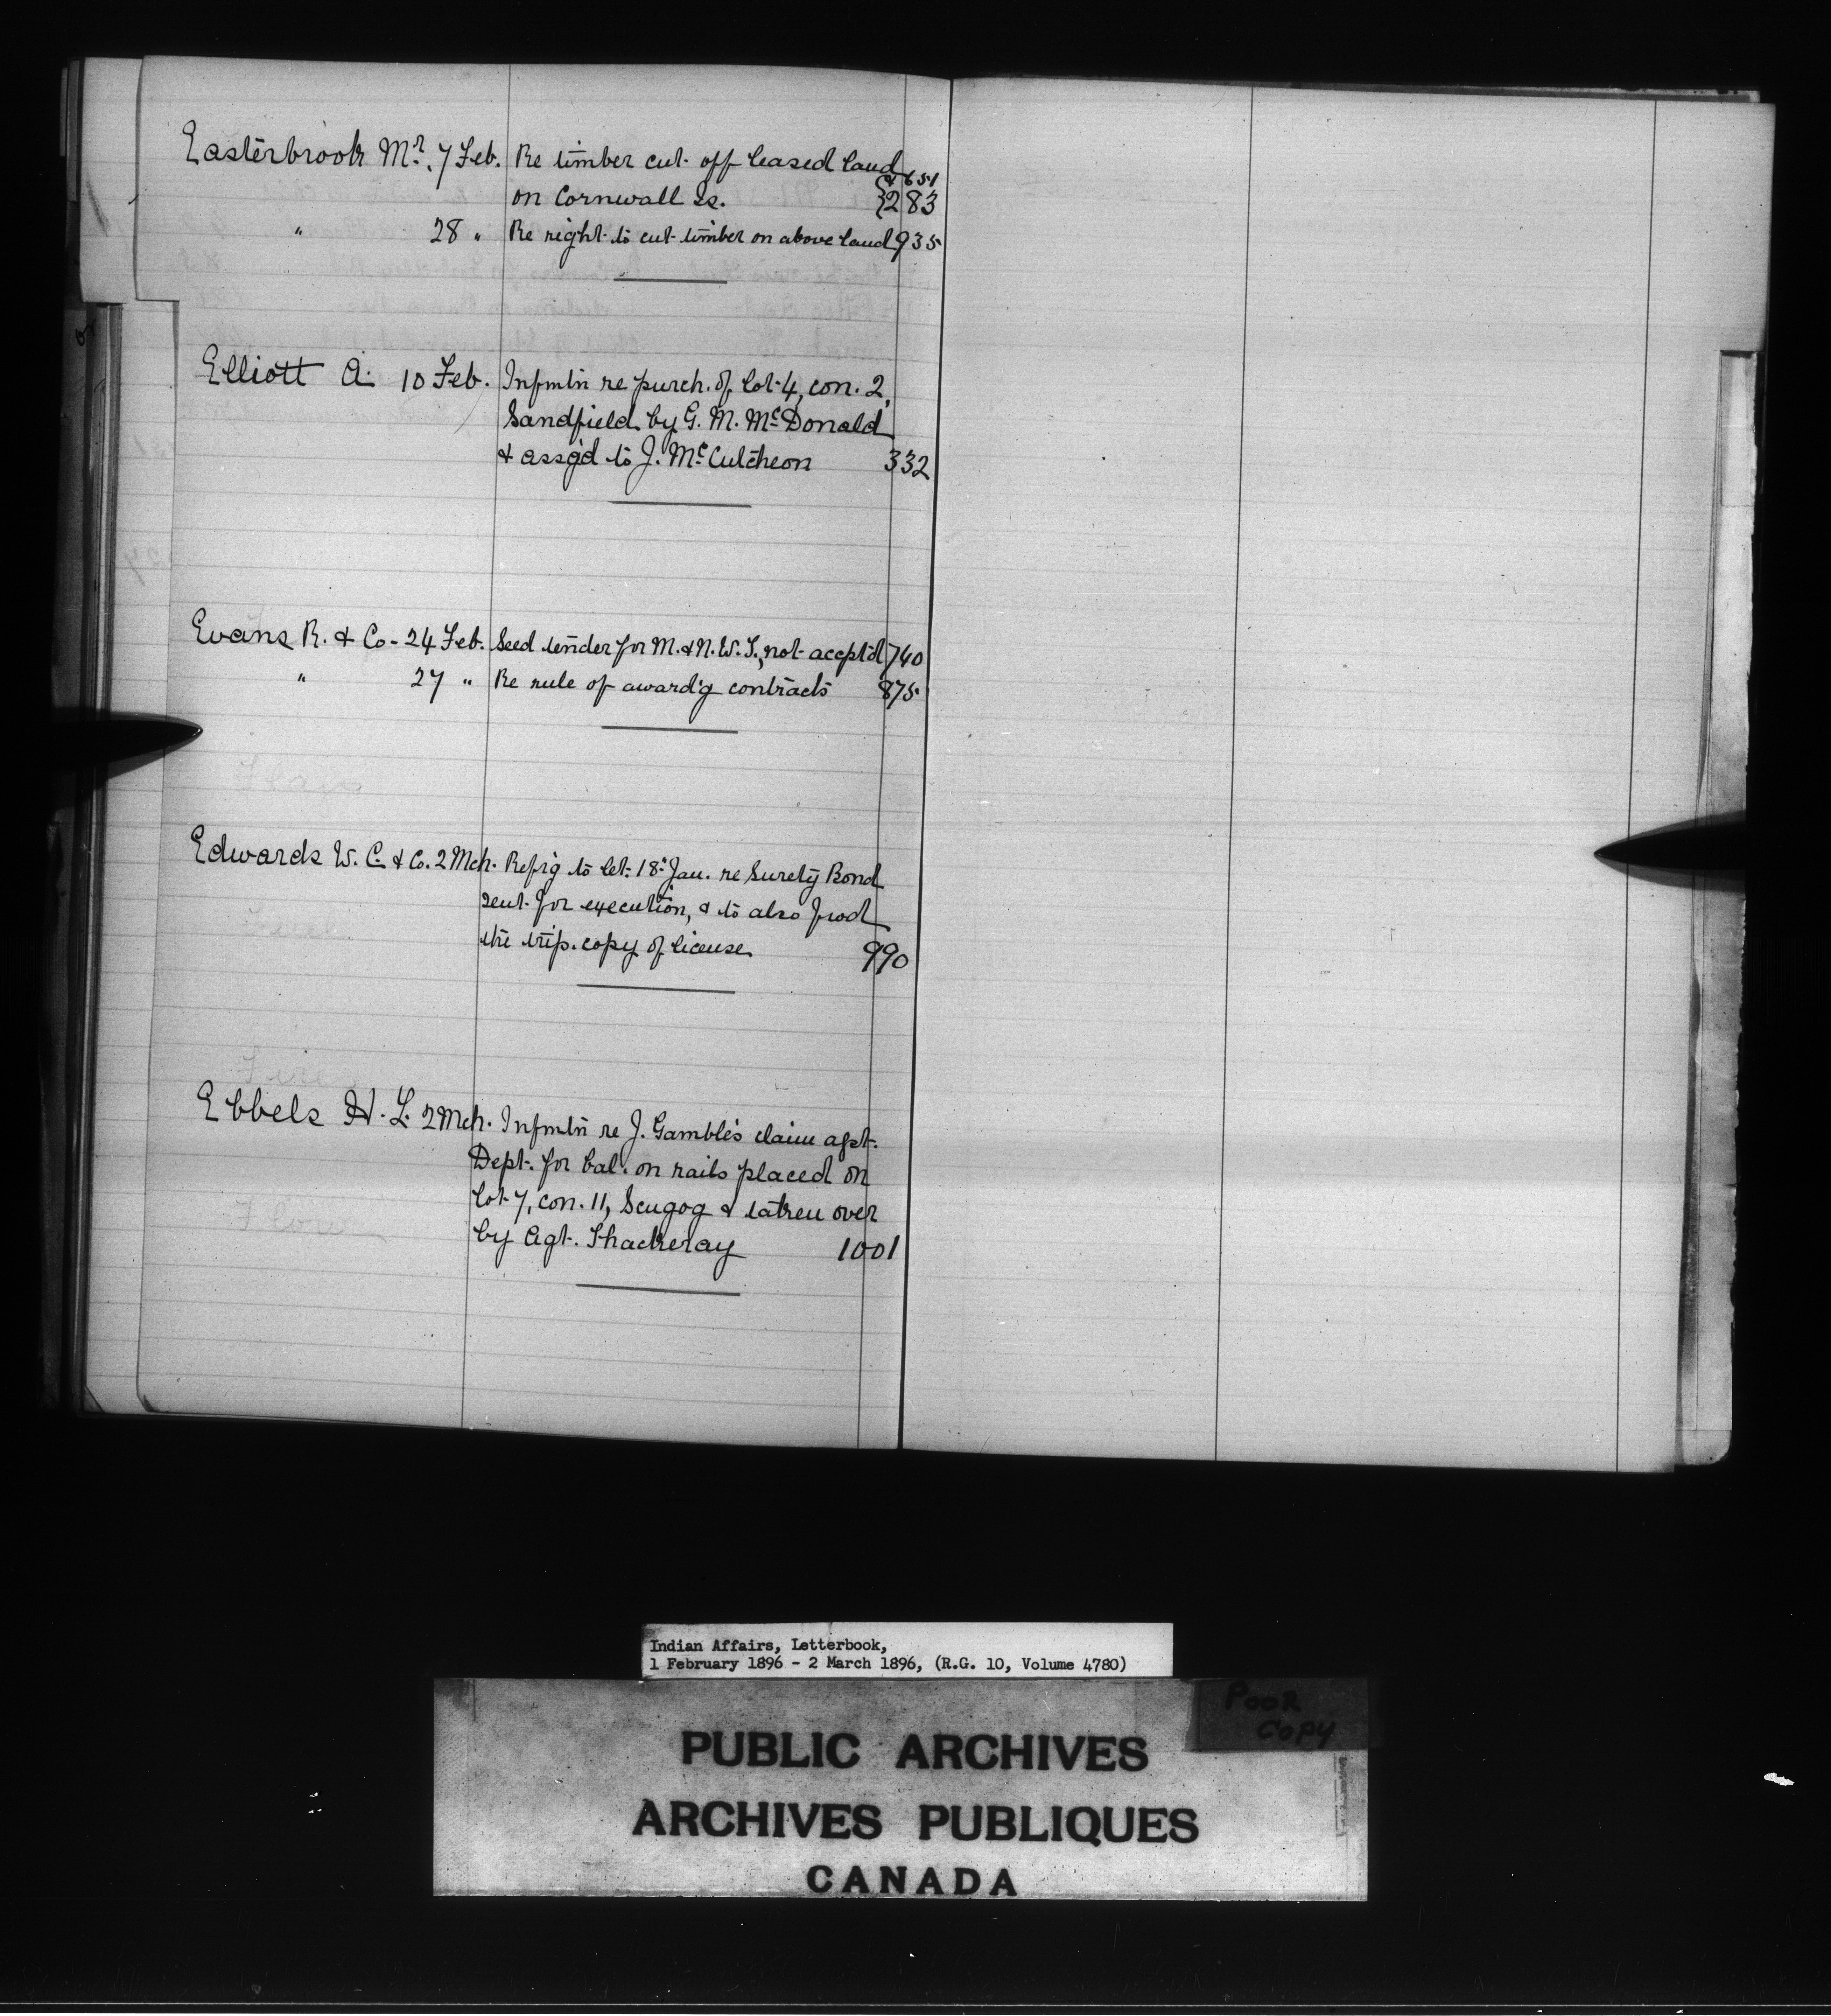 Easterbrook Mr. 7 Feb. Re timber cut off leased land & 651
on Cornwall Is. 283
" 28 " Re right to cut timber on above land 935
Elliott A. 10 Feb. Infmtn re purch. of lot 4, con. 2,
Sandfield by G. M. McDonald
& assg'd to J. McCutcheon 332
Evans R. & Co. 24 Feb. Seed tender for M. & N.W.T., not accpt'd 740
" 27 " Re rule of award'g contracts 875
Edwards W. C. & Co. 2 Mch. Refr'g to let. 18th Jan. re Surety Bond
sent for execution, & to also
the trip. copy of license 990
Ebbels H. L. 2 Mch. Infmtn re J. Gamble's claim agst.
Dept. for bal. on rails placed on
lot 7, con. 11, Scugog & taken over
by Agt. Thackeray 1001
Indian Affairs, Letterbook,
1 February 1896 - 2 March 1896, (R.G. 10, Volume 4780)
POOR
COPY
PUBLIC ARCHIVES
ARCHIVES PUBLIQUES
CANADA